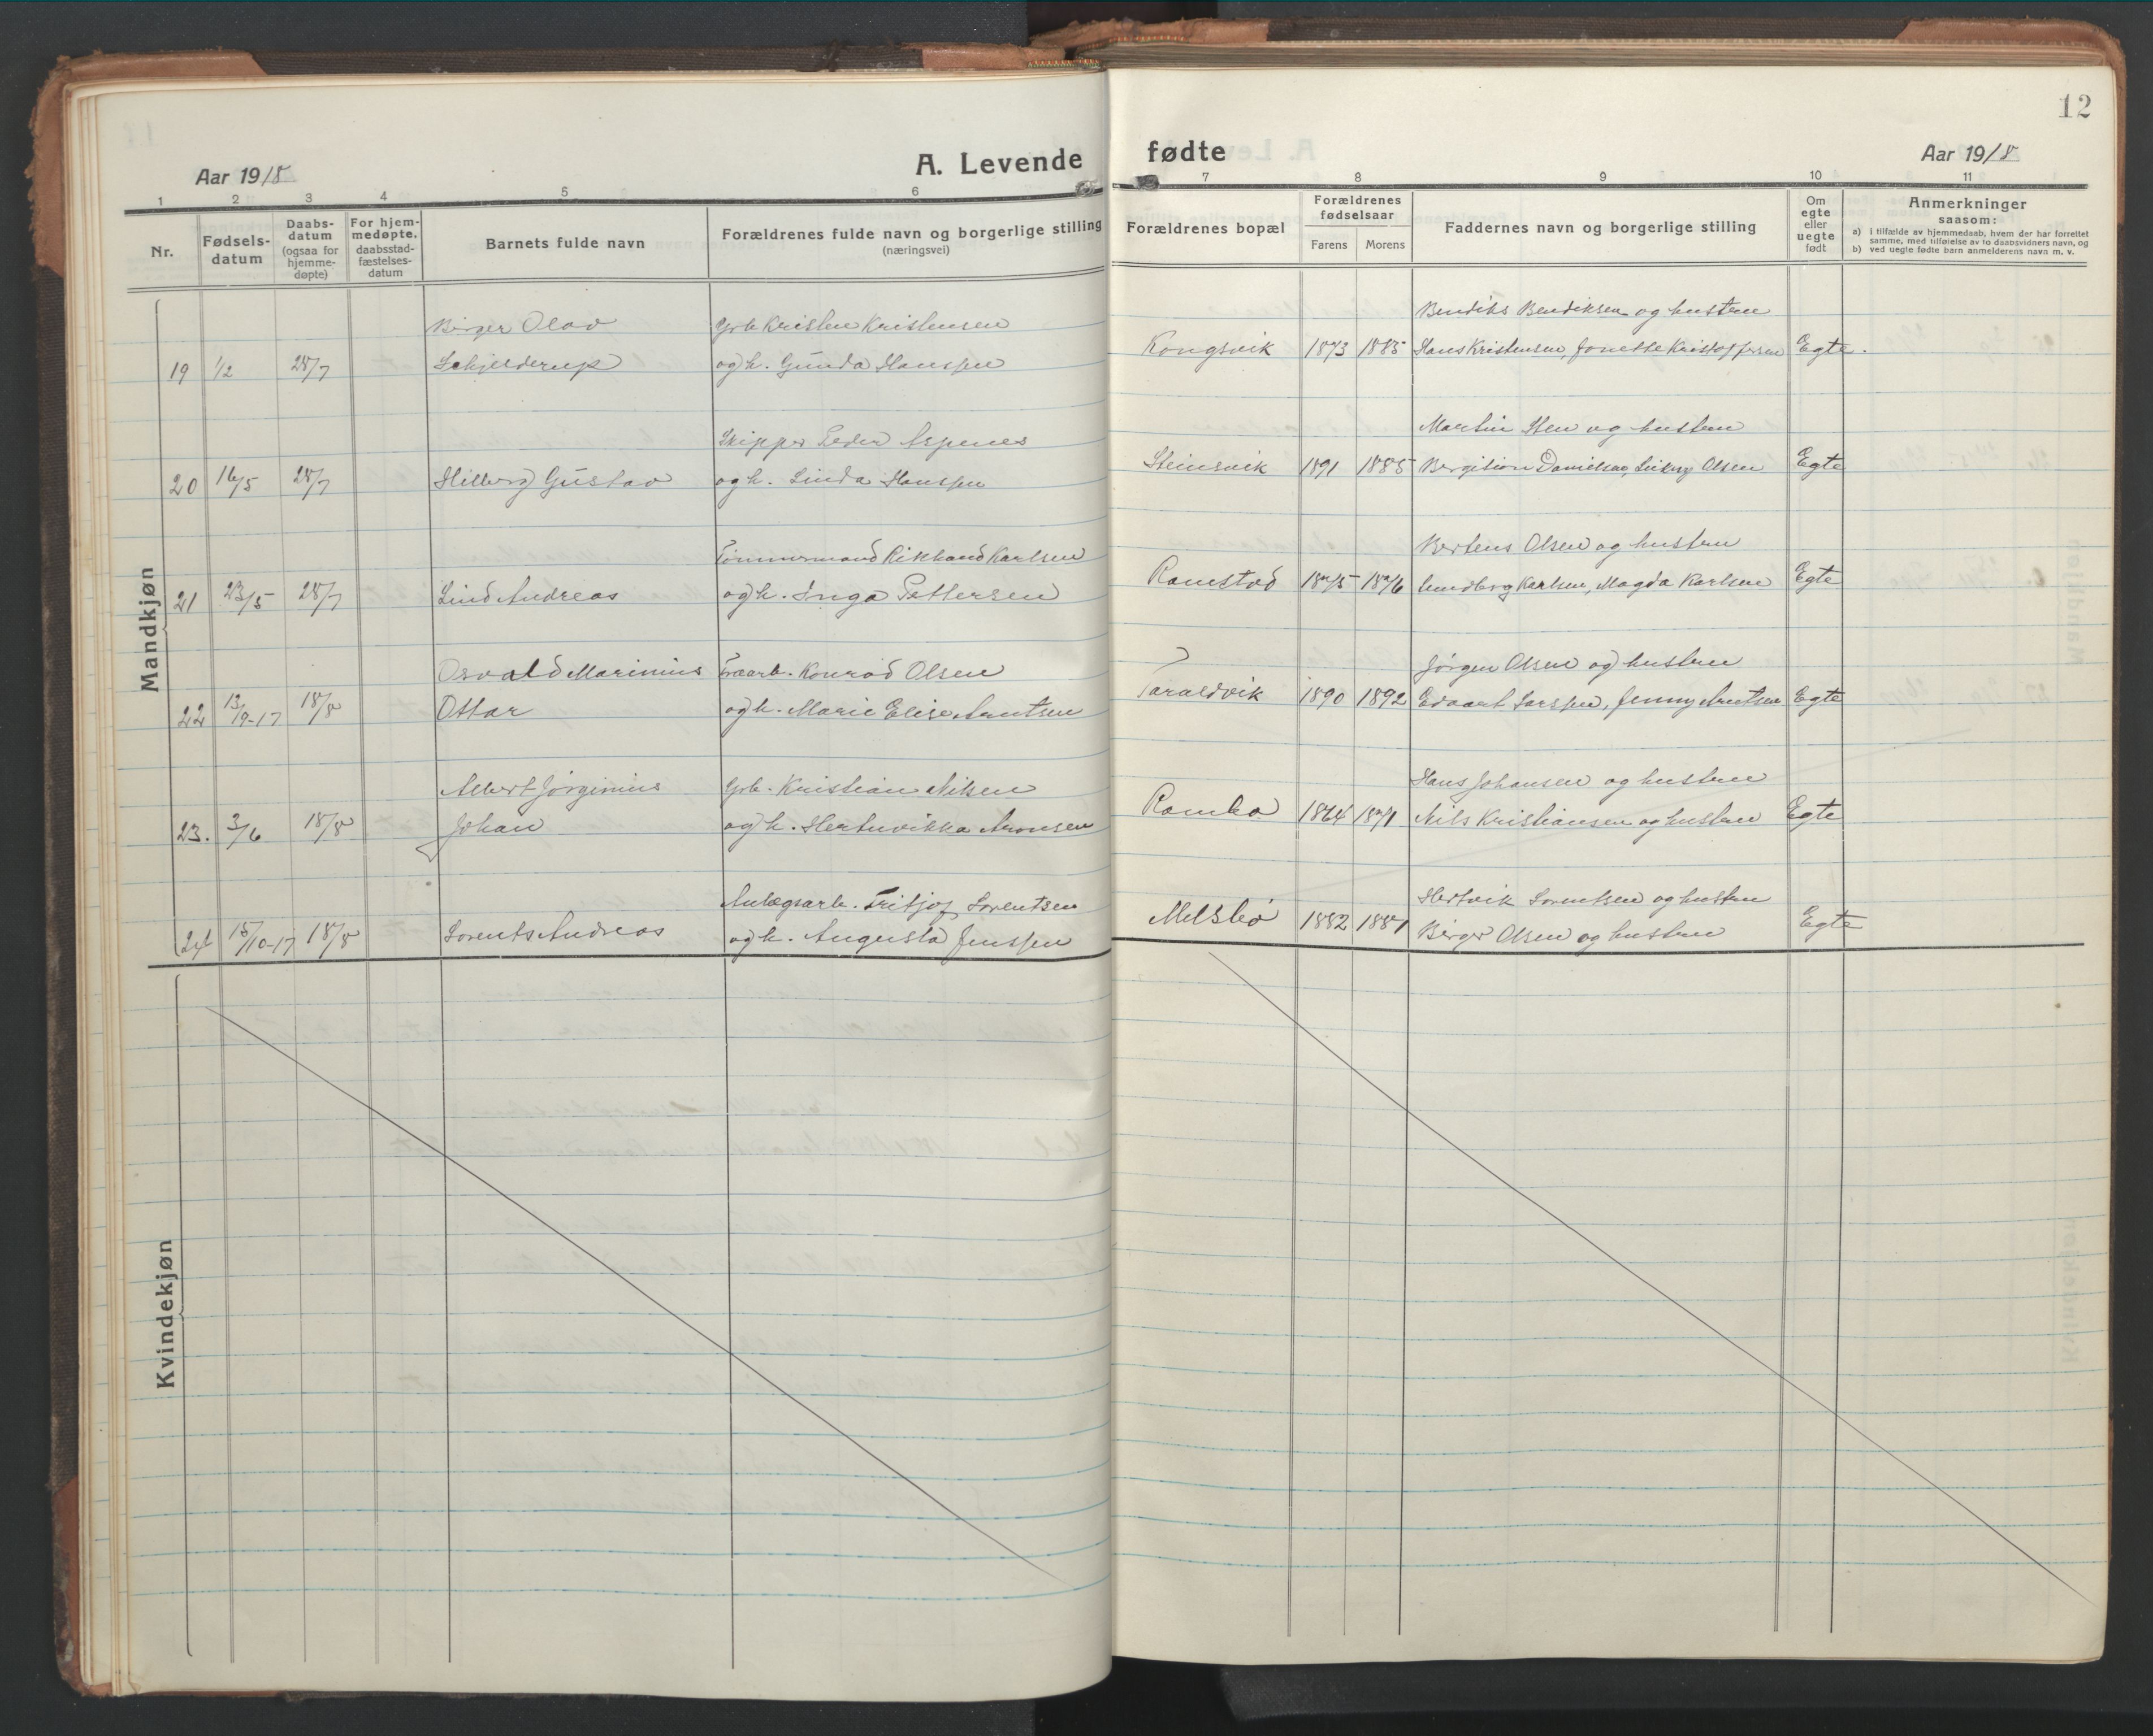 12
A. Levende fødte
Aar 1918
Aar 1918
1 2 3 4 5 6 7 8 9 10 11
Nr.
Fødsels-
datum
Daabs-
datum
(ogsaa for
hjemme-
døpte)
For hjem-
medøpte.
daabsstad-
fæstelses-
datum
Barnets fulde navn
Forældrenes fulde navn og borgerlige stilling
(næringsvei)
Forældrenes bopæl
Forældrenes
fødselsaar
Farens Morens
Faddernes navn og borgerlige stilling
Om
egte
eller
uegte
født
Anmerkninger
saasom:
a) i tilfælde av hjemmedaab, hvem der har forrettet
samme, med tilføielse av to daabsvidners navn, og
b) ved uegte fødte barn anmelderens navn m. v.
Mandkjøn
Birger Olav Grb Kristen Kristensen Bendiks Bendiksen og hustru
19 1/2 28/7 Schjelderup og h. Gunda Hanssen Kongsvik 1873 1885 Hans Kristensen, Jonette Kristoffersen Egte.
Skipper Peder Aspenes Martin Sten og hustru
20 16/5 28/7 Hilberg Gustav og h. Linda Hanssen Steinsvik 1891 1885 Danielsen, Olsen Egte
Tømmermand Rikhard Karlsen Bertens Olsen og hustru
21 23/5 28/7 Lind Andreas og h. Inga Pettersen Ramstad 1875 1876 Lundberg Karlsen, Magda Karlsen Egte
Osvald Marinius Træarb. Konrad Olsen Jørgen Olsen og hustru
22 13/9-17 18/8 Ottar og h. Marie Elise Arntsen Taraldvik 1890 1892 Edvart Larssen, Jenny Arntsen Egte
Albert Jørginius Grb. Kristian Nilsen Hans Johansen og hustru
23. 3/6 18/8 Johan og h. Hertnvikka Aronsen Ramba 1864 1871 Nils Kristiansen og hustru Egte
Anlægsarb. Fritjof Lorentsen Hertvik Lorentsen og hustru
24 15/10-17 18/8 Lorents Andreas og h. Augusta Jenssen Melsbø 1882 1881 Birger Olsen og hustru Egte
Kvindekjøn